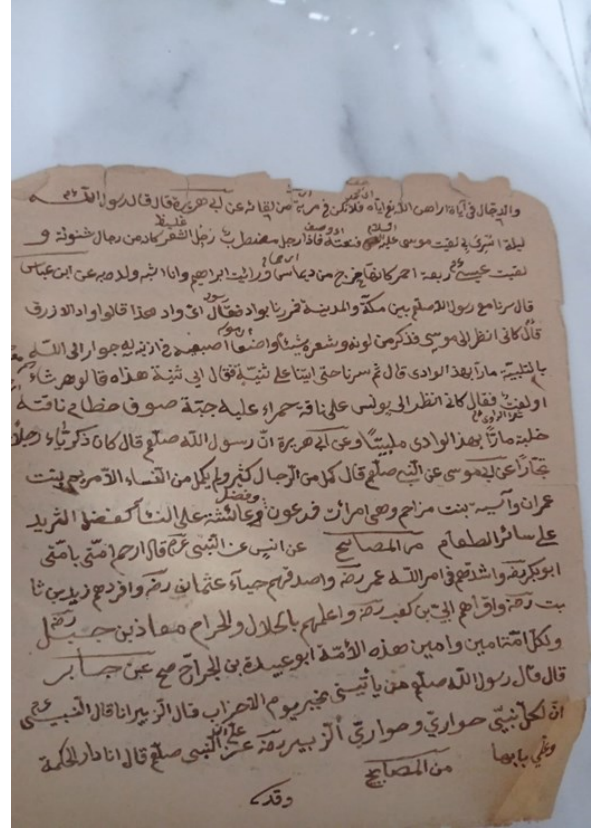 والدجال في آياة اراهن الله اياه فلا تكن في مرية من لقائه عن ابي هريرة قال قال رسول الله عم
ليلة اسري بي لقيت موسى عليه السلام فنعته فاذا رجل مضطرب رجل الشعر كانه من رجال شنوئة و
لقيت عيسى ربعة احمر كانما يخرج من ديماس ورايت ابراهيم وانا اشبه ولده به عن ابن عباس
قال سرنا مع رسول الله صلعم بين مكة والمدينة فمررنا بواد فقال اي واد هذا قالوا واد الازرق
قال كاني انظر الى موسى فذكر من لونه وشعره شيئا واضعا اصبعيه في اذنيه له جوار الى الله
بالتلبية مارا بهذا الوادي قال ثم سرنا حتى اتينا على ثنية فقال اي ثنية هذه قالوا هرشاء
او لفت فقال كاني انظر الى يونس على ناقة حمراء عليه جبة صوف خطام ناقته
خلبة مارا بهذا الوادي ملبيا وعن ابي هريرة ان رسول الله صلعم قال كان ذكرياء رجلا
نجارا عن ابي موسى عن النبي صلعم قال كمل من الرجال كثير ولم يكمل من النساء الا مريم بنت
عمران وآسية بنت مزاحم وهي امرات فرعون وفضل عائشة على النساء كفضل الثريد
على سائر الطعام من المصابيح عن انس عن النبي عم قال ارحم امتي بامتي
ابو بكر رضه واشدهم في امر الله عمر رضه واصدقهم حياء عثمان رضه وافرضهم زيد بن ثا
بت رضه واقراهم ابي بن كعب رضه واعلمهم بالحلال والحرام معاذ بن جبل رضه
ولكل امة امين وامين هذه الامة ابو عبيدة بن الجراح صح عن جابر
قال قال رسول الله صلعم من ياتيني بخبر يوم الاحزاب قال الزبير انا قال النبي عم
ان لكل نبي حواري وحواري الزبير رضه عن علي عن النبي صلعم قال انا دار الحكمة
وعلي بابها من المصابيح
وقد